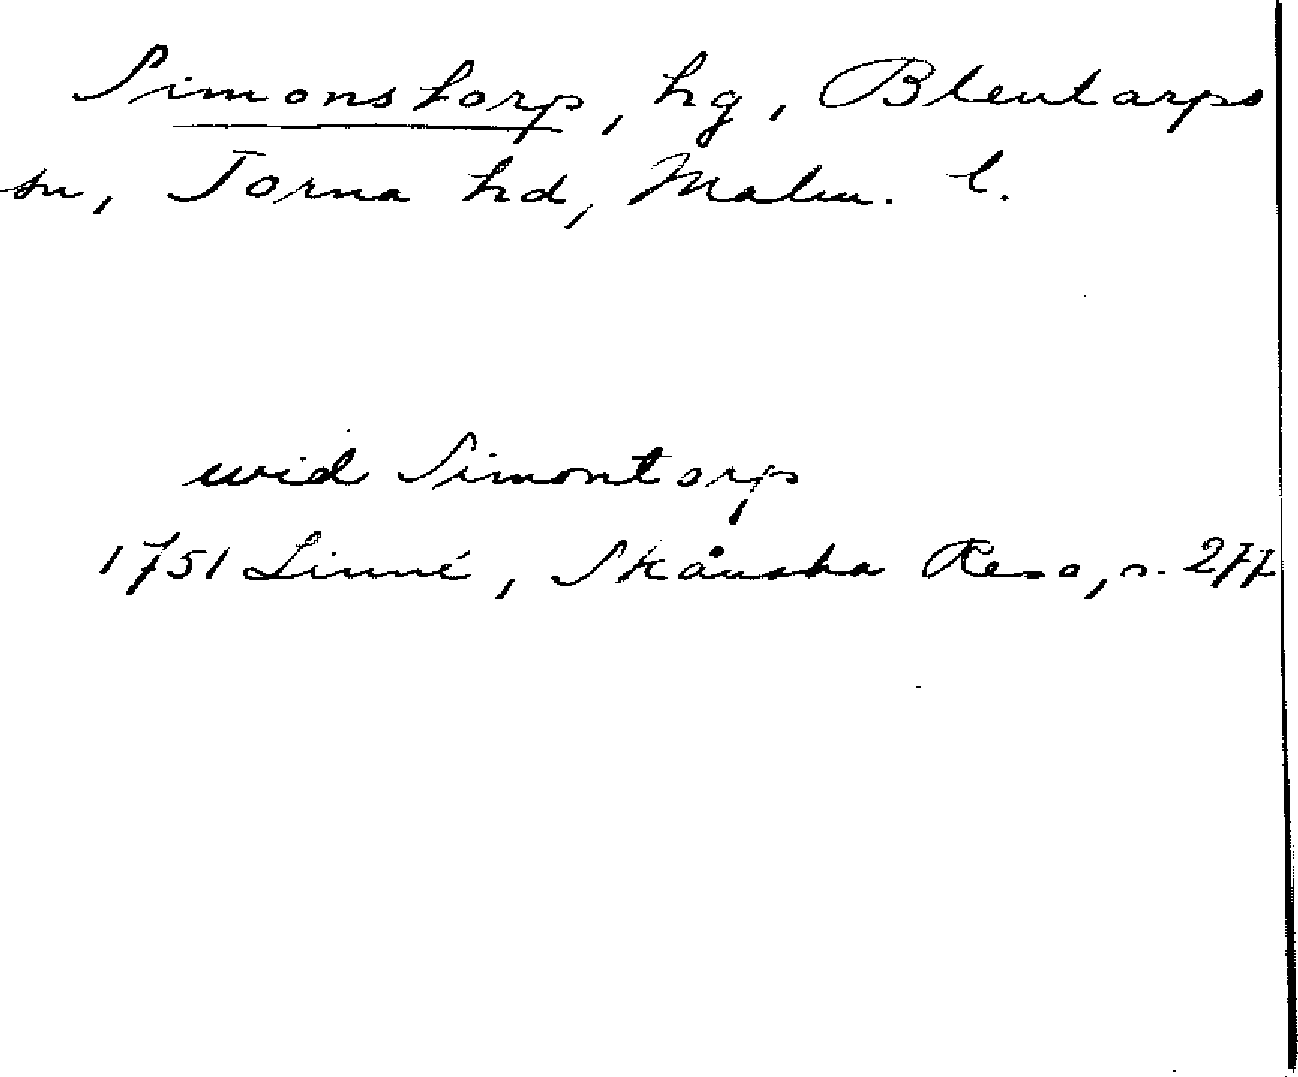 Simonstorp, hg, Blentarps
sn, Torna hd, Malm. l.
wid Simontorp
1751 Linné, Skånska Resa, s. 277